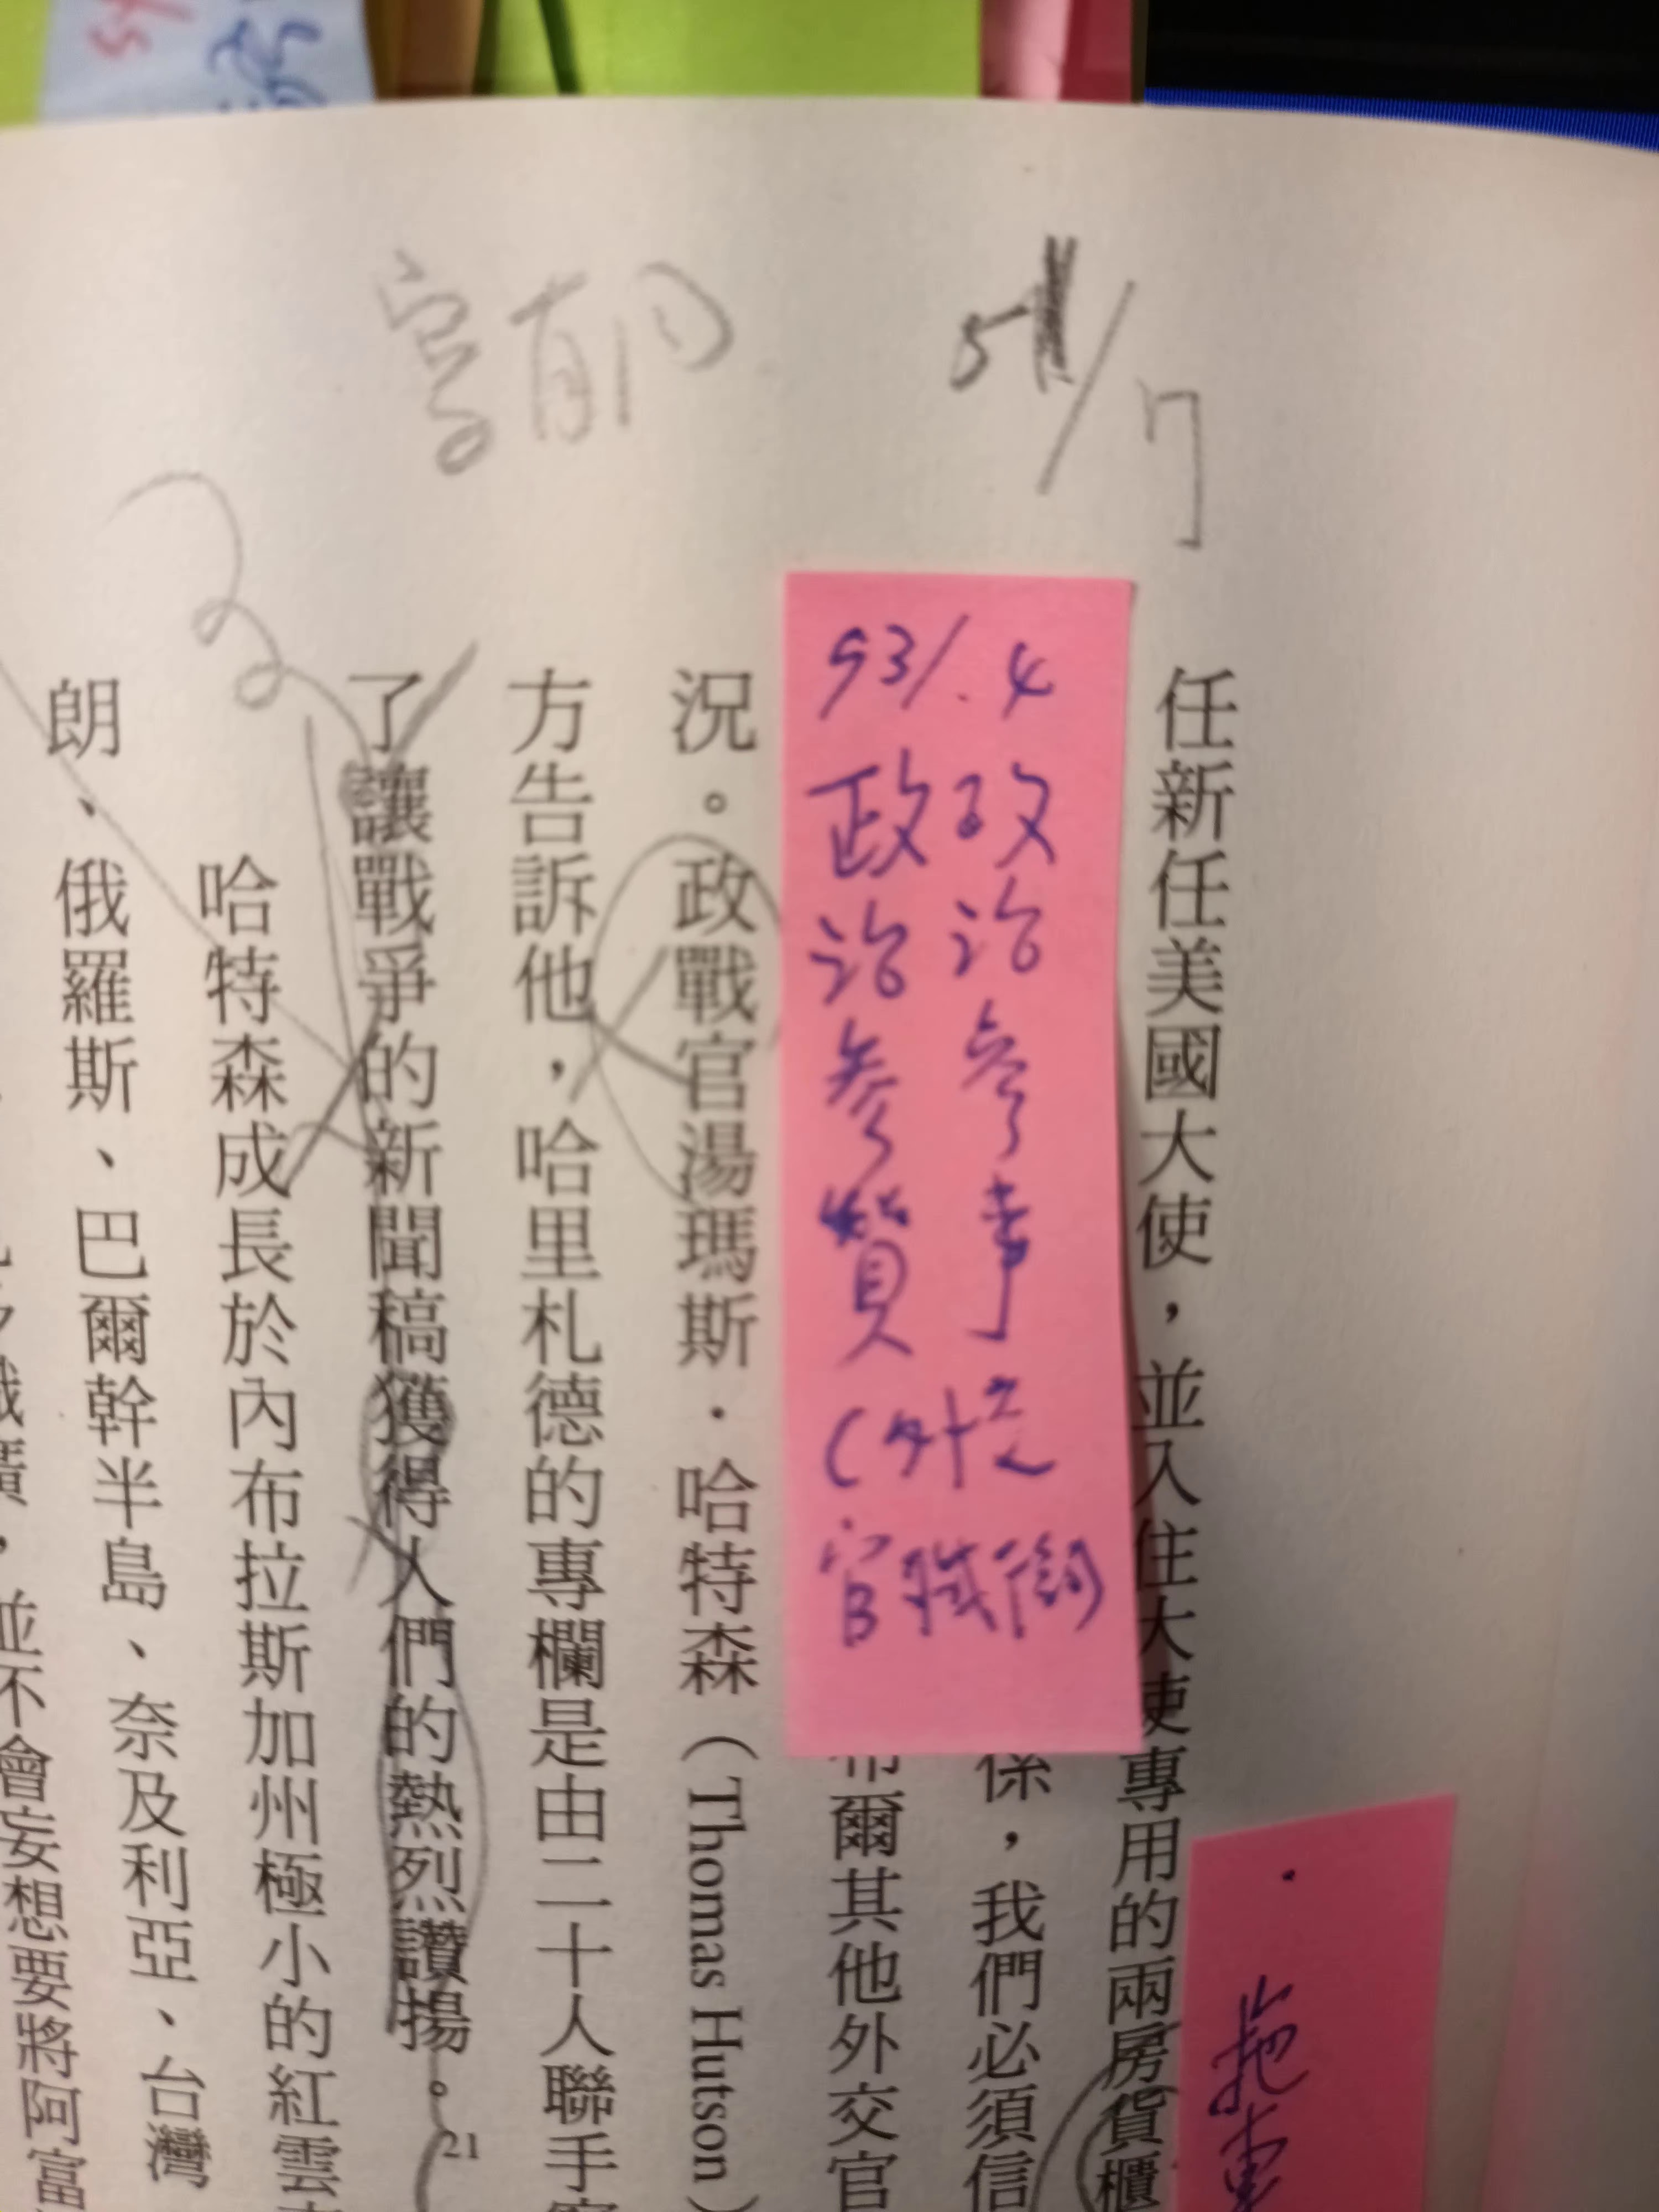 51/7
任新任美國大使，並入住大使專用的兩房貨櫃
係，我們必須信
布爾其他外交官
93/.4
政治參事
政治參贊
(外交
官職銜)
拖車
況。政戰官湯瑪斯．哈特森（Thomas Hutson）
方告訴他，哈里札德的專欄是由二十人聯手
了讓戰爭的新聞稿獲得人們的熱烈讚揚。21
哈特森成長於內布拉斯加州極小的紅雲
朗、俄羅斯、巴爾幹半島、奈及利亞、台灣
，並不會妄想要將阿富